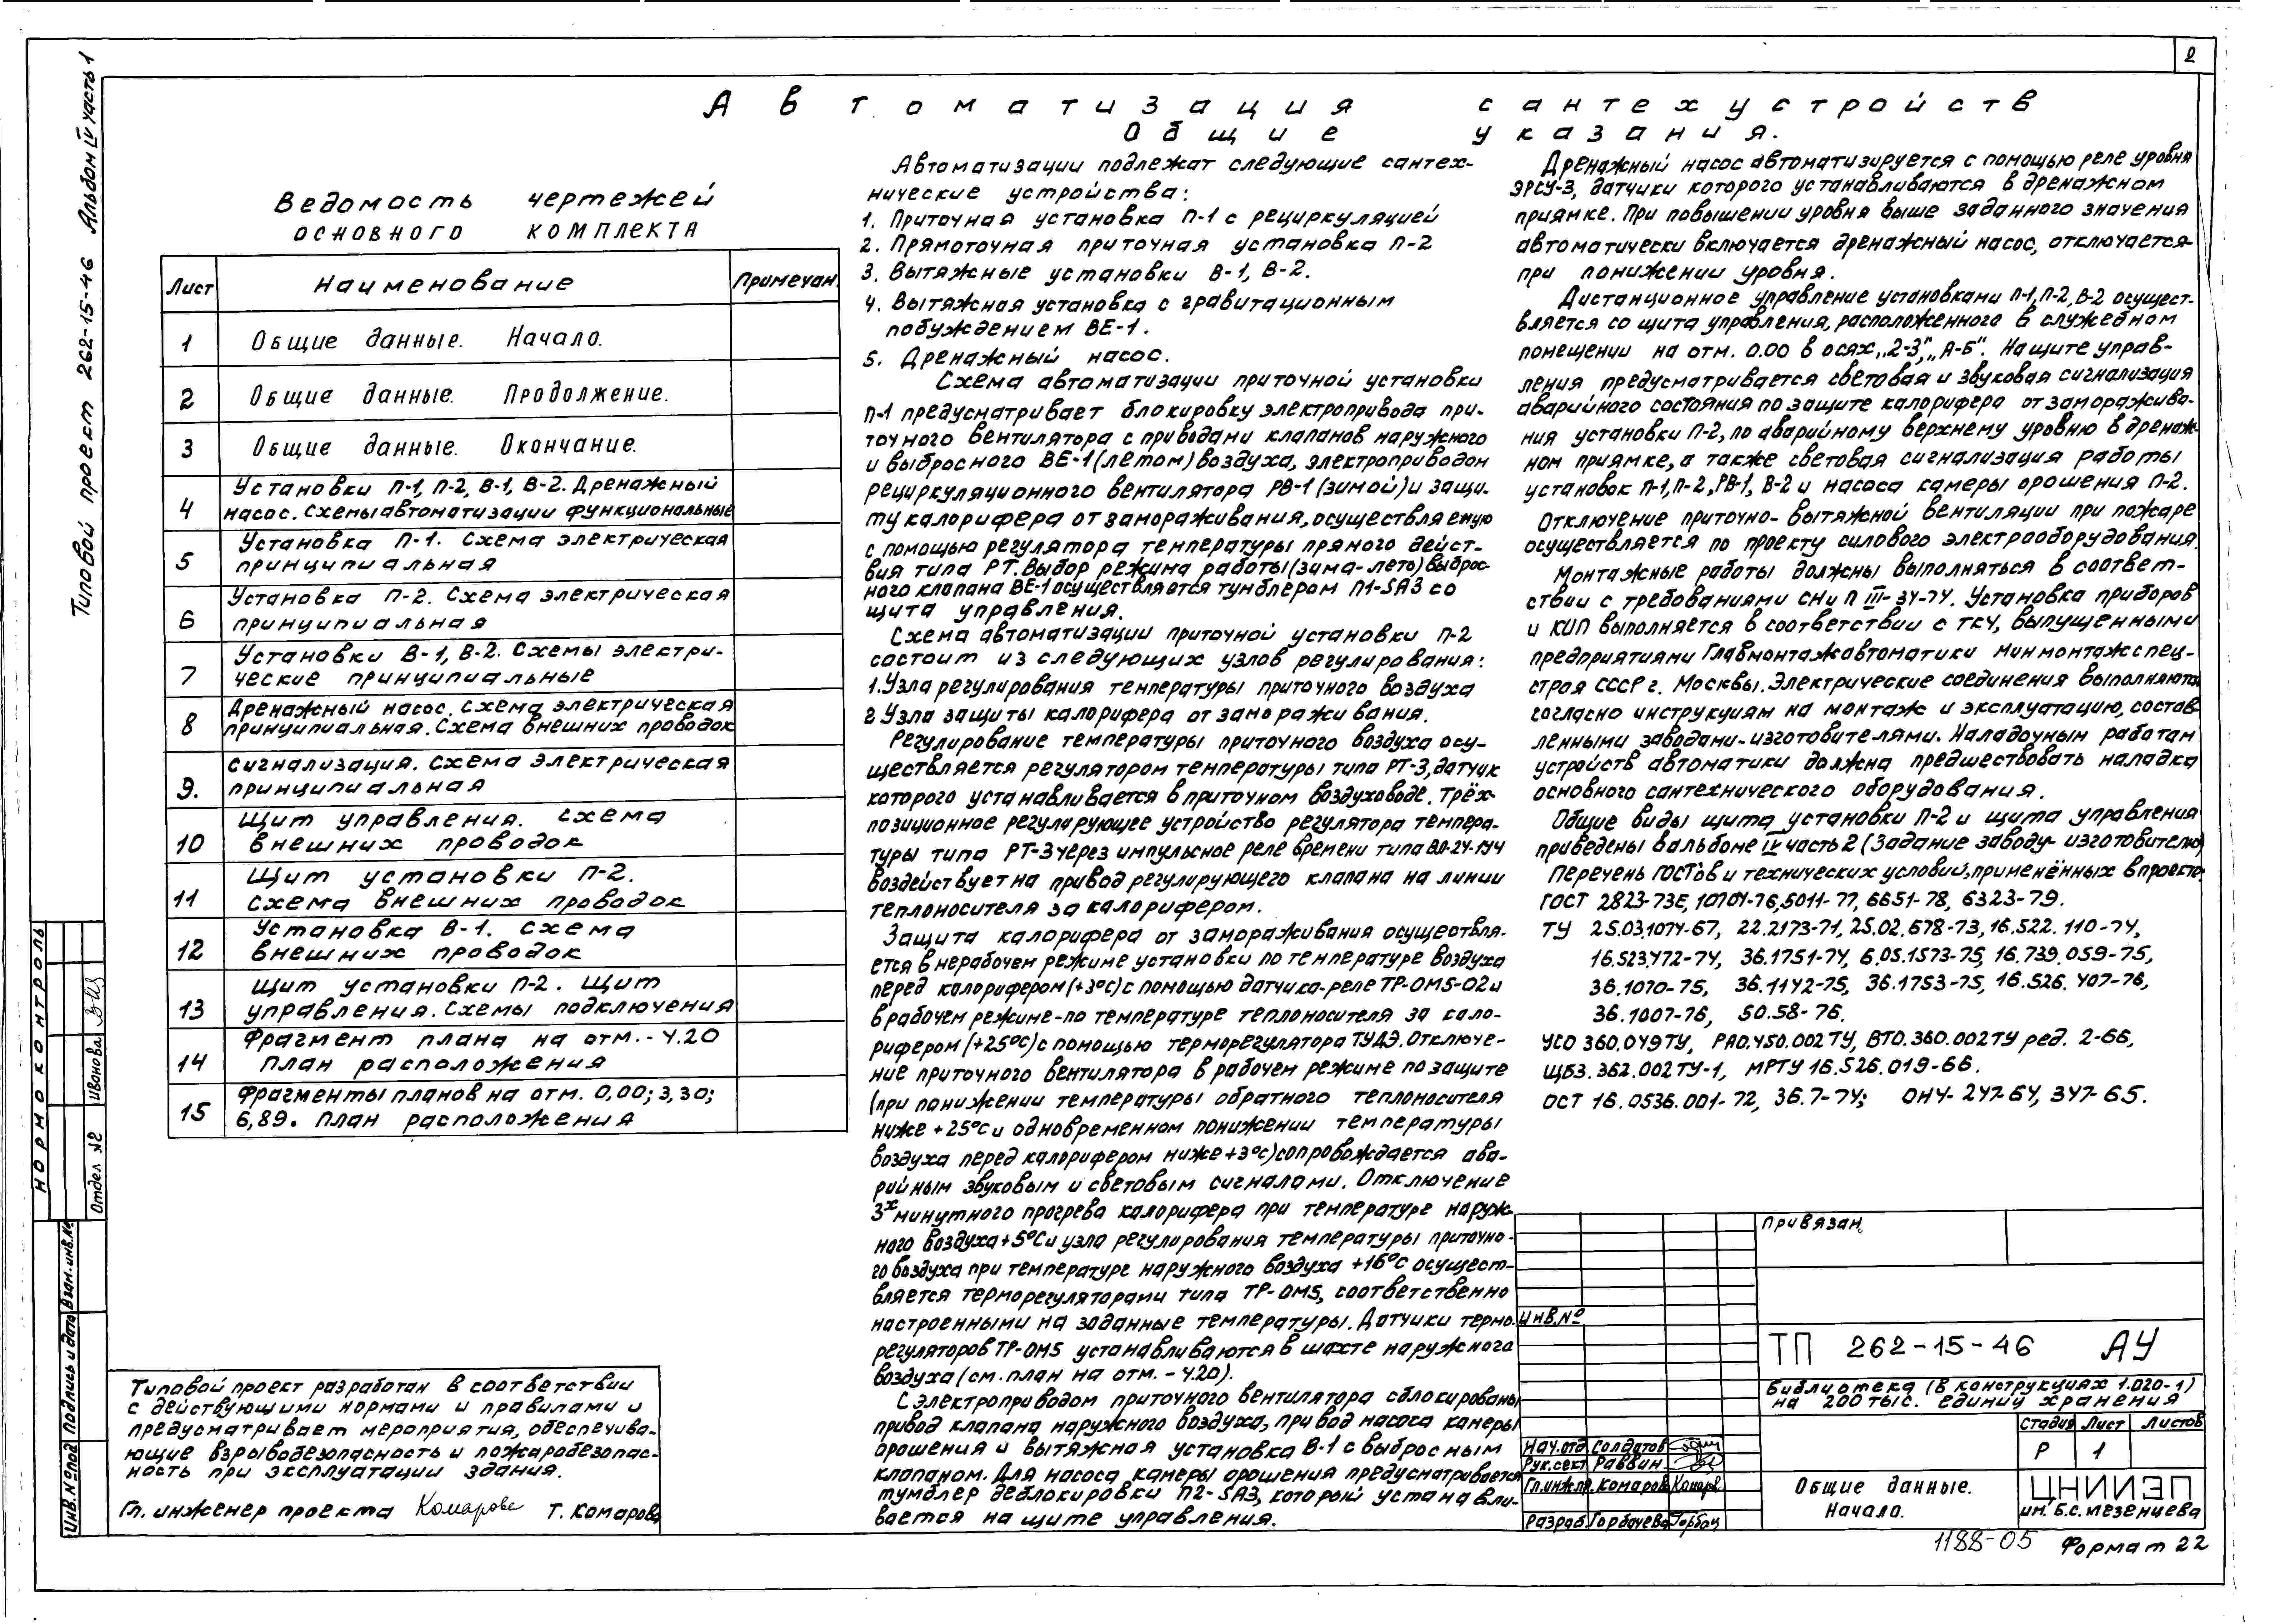 2
Типовой проект 262-15-46 Альбом IV часть 1
Автоматизация сантехустройств
Общие указания.
Ведомость чертежей
основного комплекта
Лист Наименование Примечан.
1 Общие данные. Начало.
2 Общие данные. Продолжение.
3 Общие данные. Окончание.
4 Установки П-1, П-2, В-1, В-2. Дренажный
насос. Схемы автоматизации функциональные
5 Установка П-1. Схема электрическая
принципиальная
6 Установка П-2. Схема электрическая
принципиальная
7 Установки В-1, В-2. Схемы электри-
ческие принципиальные
8 Дренажный насос. Схема электрическая
принципиальная. Схема внешних проводок
9. Сигнализация. Схема электрическая
принципиальная
10 Щит управления. Схема
внешних проводок
11 Щит установки П-2.
Схема внешних проводок
12 Установка В-1. Схема
внешних проводок
13 Щит установки П-2. Щит
управления. Схемы подключения
14 Фрагмент плана на отм. -4.20
план расположения
15 Фрагменты планов на отм. 0,00; 3,30;
6,89. План расположения
Автоматизации подлежат следующие сантех-
нические устройства:
1. Приточная установка П-1 с рециркуляцией
2. Прямоточная приточная установка П-2
3. Вытяжные установки В-1, В-2.
4. Вытяжная установка с гравитационным
побуждением ВЕ-1.
5. Дренажный насос.
Схема автоматизации приточной установки
П-1 предусматривает блокировку электропривода при-
точного вентилятора с приводами клапанов наружного
и выбросного ВЕ-1 (летом) воздуха, электроприводом
рециркуляционного вентилятора РВ-1 (зимой) и защи-
ту калорифера от замораживания, осуществляемую
с помощью регулятора температуры прямого дейст-
вия типа РТ. Выбор режима работы (зима-лето) выброс-
ного клапана ВЕ-1 осуществляется тумблером П1-SA3 со
щита управления.
Схема автоматизации приточной установки П-2
состоит из следующих узлов регулирования:
1. Узла регулирования температуры приточного воздуха
2 Узла защиты калорифера от замораживания.
Регулирование температуры приточного воздуха осу-
ществляется регулятором температуры типа РТ-3, датчик
которого устанавливается в приточном воздуховоде. Трёх-
позиционное регулирующее устройство регулятора темпера-
туры типа РТ-3 через импульсное реле времени типа ВЛ-24-1У4
воздействует на привод регулирующего клапана на линии
теплоносителя за калорифером.
Защита калорифера от замораживания осуществля-
ется в нерабочем режиме установки по температуре воздуха
перед калорифером (+3°С) с помощью датчика-реле ТР-ОМ5-02 и
в рабочем режиме-по температуре теплоносителя за кало-
рифером (+25°С) с помощью терморегулятора ТУДЭ. Отключе-
ние приточного вентилятора в рабочем режиме по защите
(при понижении температуры обратного теплоносителя
ниже +25°С и одновременном понижении температуры
воздуха перед калорифером ниже +3°С) сопровождается ава-
рийным звуковым и световым сигналами. Отключение
3х минутного прогрева калорифера при температуре наруж-
ного воздуха +5°С и узла регулирования температуры приточно-
го воздуха при температуре наружного воздуха +16°С осущест-
вляется терморегуляторами типа ТР-ОМ5, соответственно
настроенными на заданные температуры. Датчики термо-
регуляторов ТР-ОМ5 устанавливаются в шахте наружного
воздуха (см. план на отм. -4.20).
С электроприводом приточного вентилятора сблокированы
привод клапана наружного воздуха, привод насоса камеры
орошения и вытяжная установка В-1 с выбросным
клапаном. Для насоса камеры орошения предусматривается
тумблер деблокировки П2-SA3, который устанавли-
вается на щите управления.
Дренажный насос автоматизируется с помощью реле уровня
ЭРСУ-3, датчики которого устанавливаются в дренажном
приямке. При повышении уровня выше заданного значения
автоматически включается дренажный насос, отключается-
при понижении уровня.
Дистанционное управление установками П-1, П-2, В-2 осущест-
вляется со щита управления, расположенного в служебном
помещении на отм. 0.00 в осях „2-3", „А-Б". На щите управ-
ления предусматривается световая и звуковая сигнализация
аварийного состояния по защите калорифера от заморажива-
ния установки П-2, по аварийному верхнему уровню в дренаж-
ном приямке, а также световая сигнализация работы
установок П-1, П-2, РВ-1, В-2 и насоса камеры орошения П-2.
Отключение приточно-вытяжной вентиляции при пожаре
осуществляется по проекту силового электрооборудования.
Монтажные работы должны выполняться в соответ-
ствии с требованиями СНиП III-34-74. Установка приборов
и КИП выполняется в соответствии с ТКЧ, выпущенными
предприятиями Главмонтажавтоматики Минмонтажспец-
строя СССР г. Москвы. Электрические соединения выполняются
согласно инструкциям на монтаж и эксплуатацию, состав-
ленными заводами-изготовителями. Наладочным работам
устройств автоматики должна предшествовать наладка
основного сантехнического оборудования.
Общие виды щита установки П-2 и щита управления
приведены в альбоме IV часть 2 (Задание заводу-изготовителю)
Перечень ГОСТов и технических условий, применённых в проекте:
ГОСТ 2823-73Е, 10701-76, 5011-77, 6651-78, 6323-79.
ТУ 25.03.1074-67, 22.2173-71, 25.02.678-73, 16.522.110-74,
16.523.472-74, 36.1751-74, 6.05.1573-75, 16.739.059-75,
36.1070-75, 36.1142-75, 36.1753-75, 16.526.407-76,
36.1007-76, 50.58-76.
УСО 360.049ТУ, РАО.450.002 ТУ, ВТО.360.002ТУ ред. 2-66,
ЩБЗ.362.002ТУ-1, МРТУ 16.526.019-66.
ОСТ 16.0536.001-72, 36.7-74; ОНЧ-247-64, 347-65.
Типовой проект разработан в соответствии
с действующими нормами и правилами и
предусматривает мероприятия, обеспечива-
ющие взрывобезопасность и пожаробезопас-
ность при эксплуатации здания.
Гл. инженер проекта Комарова Т. Комарова
Нормоконтроль
Отдел №2 Иванова
Инв. № под Подпись и дата Взам. инв. №
Привязан
Инв. №
ТП 262-15-46 АУ
Библиотека (в конструкциях 1.020-1)
на 200 тыс. единиц хранения
Стадия Лист Листов
Р 1
Нач. отд. Солдатов
Рук. сект Раввин
Гл. инж. пр. Комарова
Разраб. Горбачева
Общие данные.
Начало.
ЦНИИЭП
им. Б.С. Мезенцева
1188-05
Формат 22